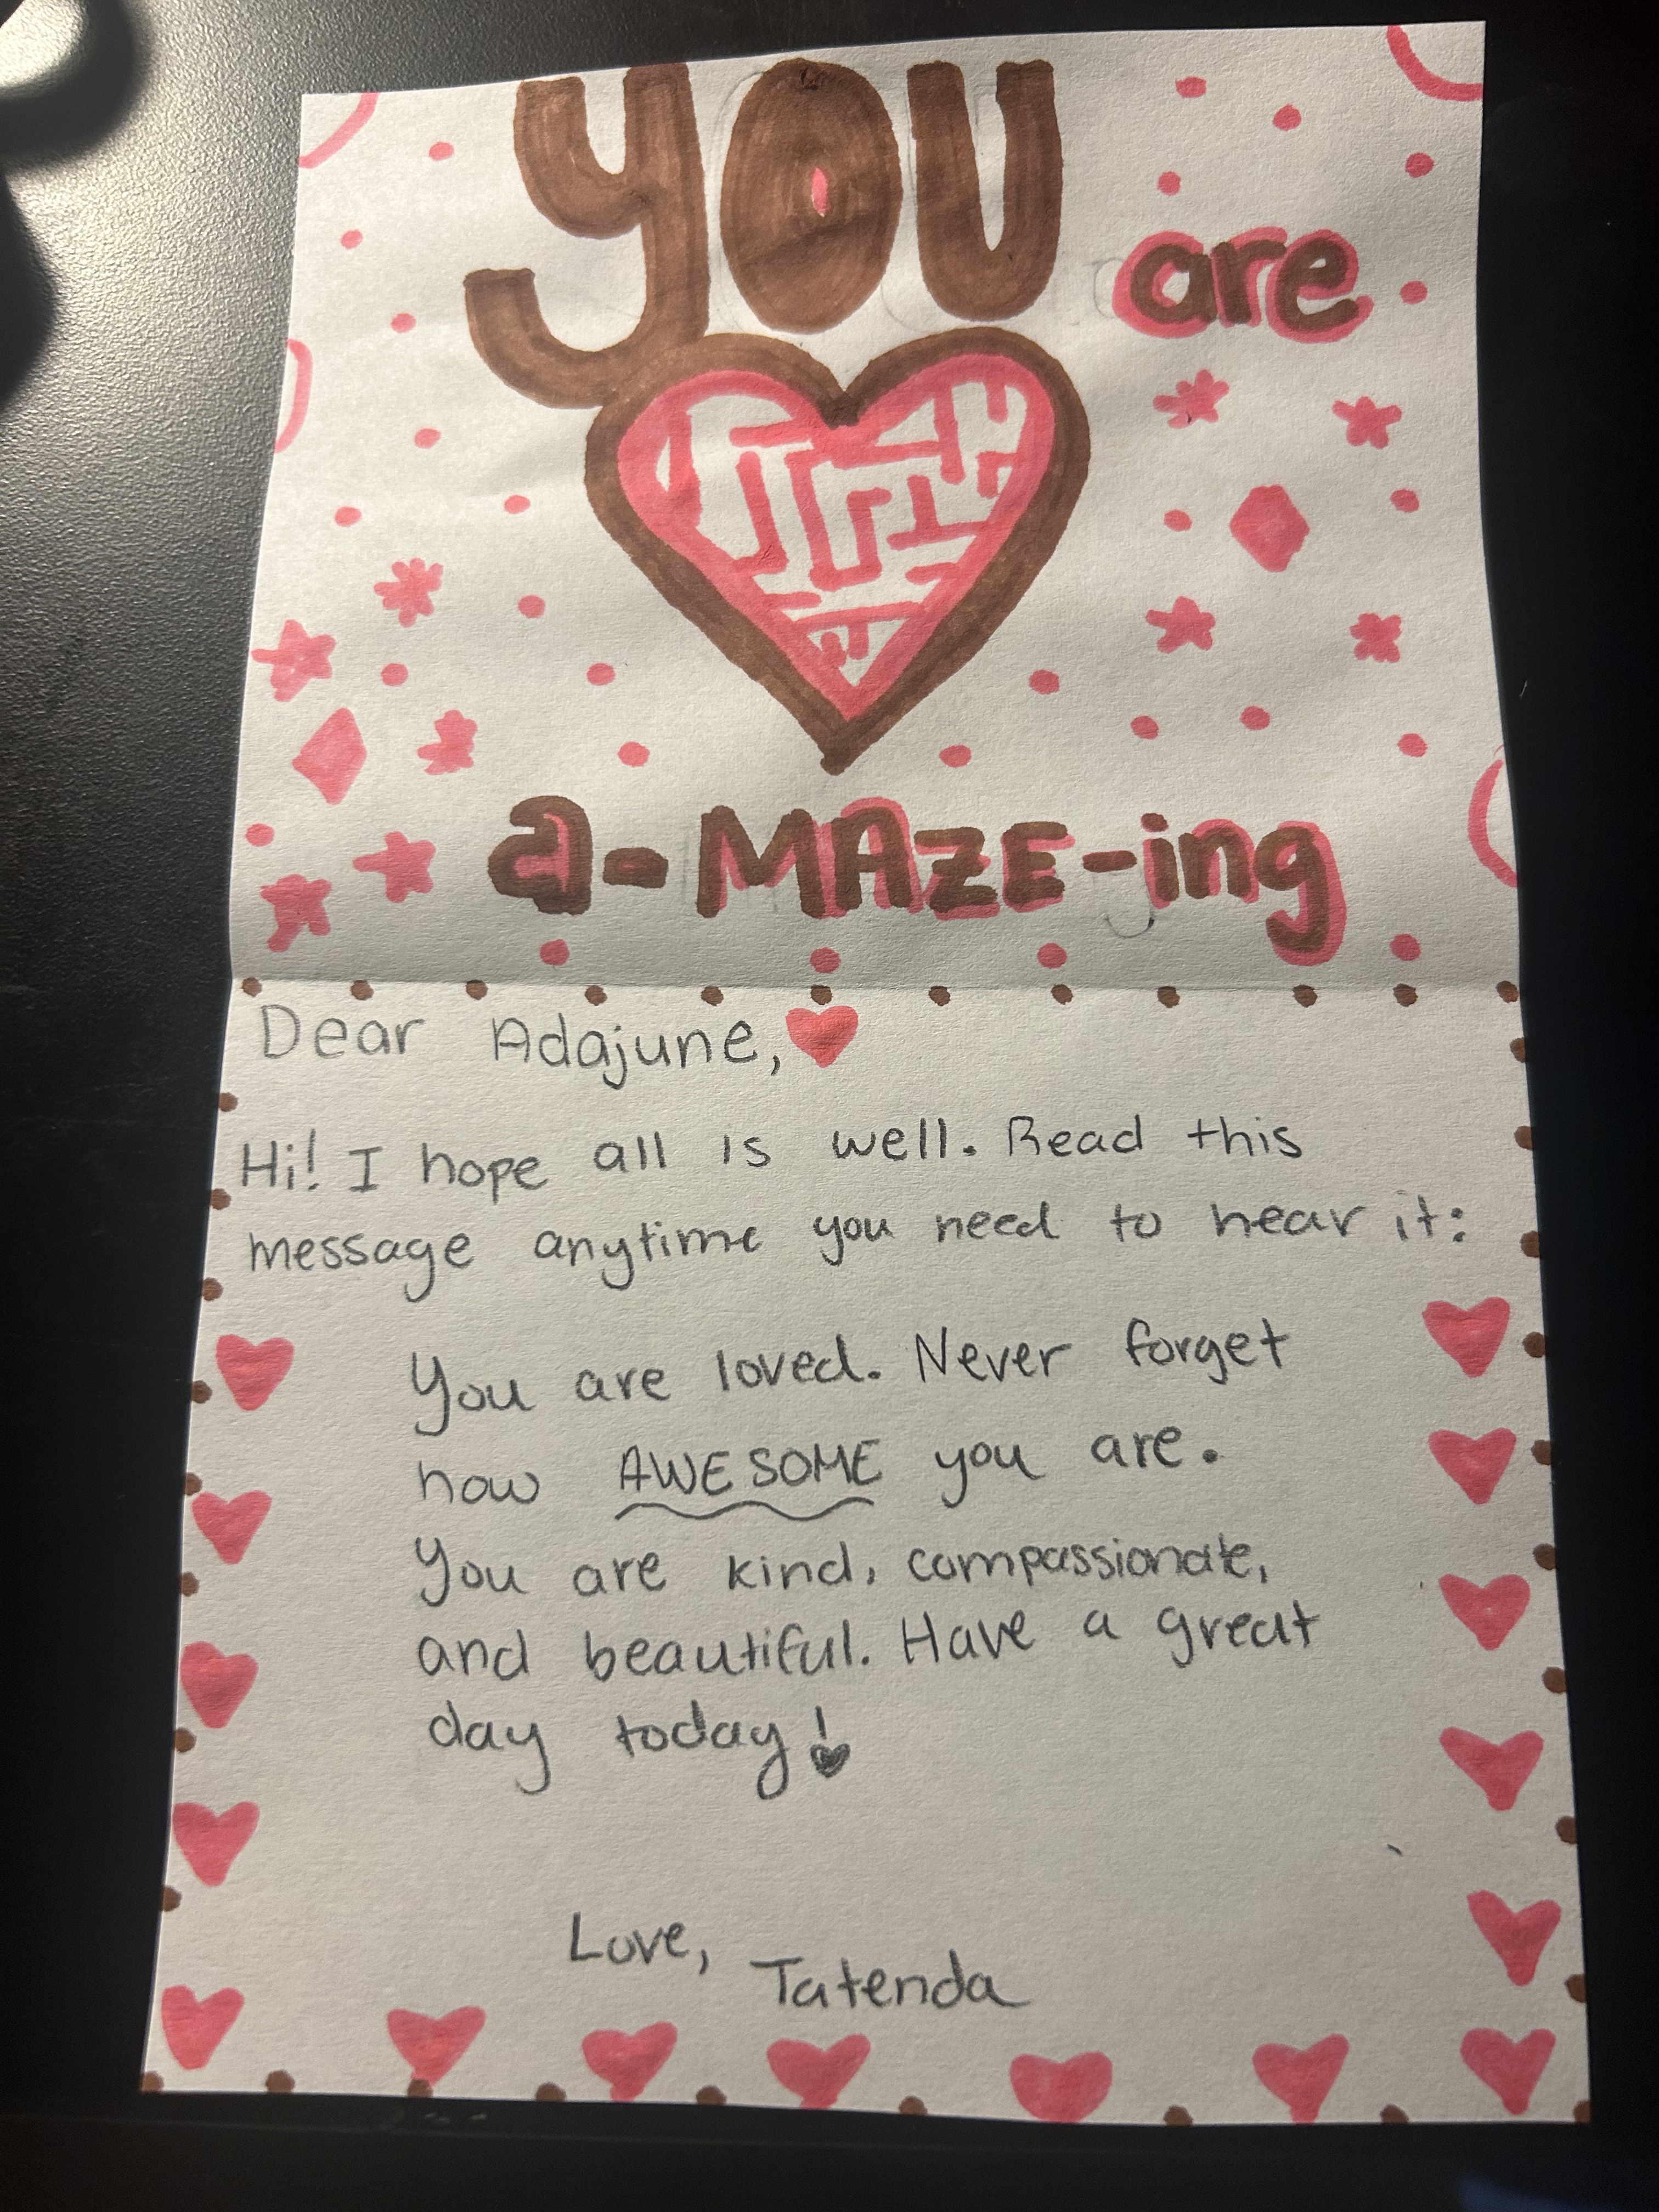 you are
a-MAZE-ing
Dear Adajune,
Hi! I hope all is well. Read this
message anytime you need to hear it:
You are loved. Never forget
how AWESOME you are.
You are kind, compassionate,
and beautiful. Have a great
day today!
Love, Tatenda